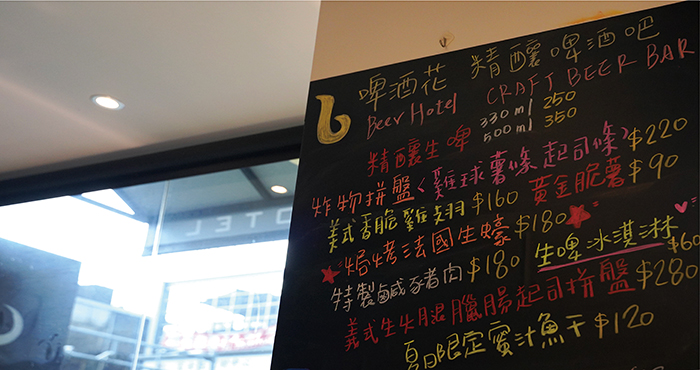 啤酒花 精釀啤酒吧
Beer Hotel CRAFT BEER BAR
精釀生啤 330 ml 250
500 ml 350
炸物拼盤<雞球薯條起司條> $220
美式香脆雞翅 $160 黃金脆薯 $90
焗烤法國生蠔 $180
特製鹹豬肉 $180 生啤冰淇淋 $60
義式生火腿臘腸起司拼盤 $280
夏日限定蜜汁魚干 $120
OTEL